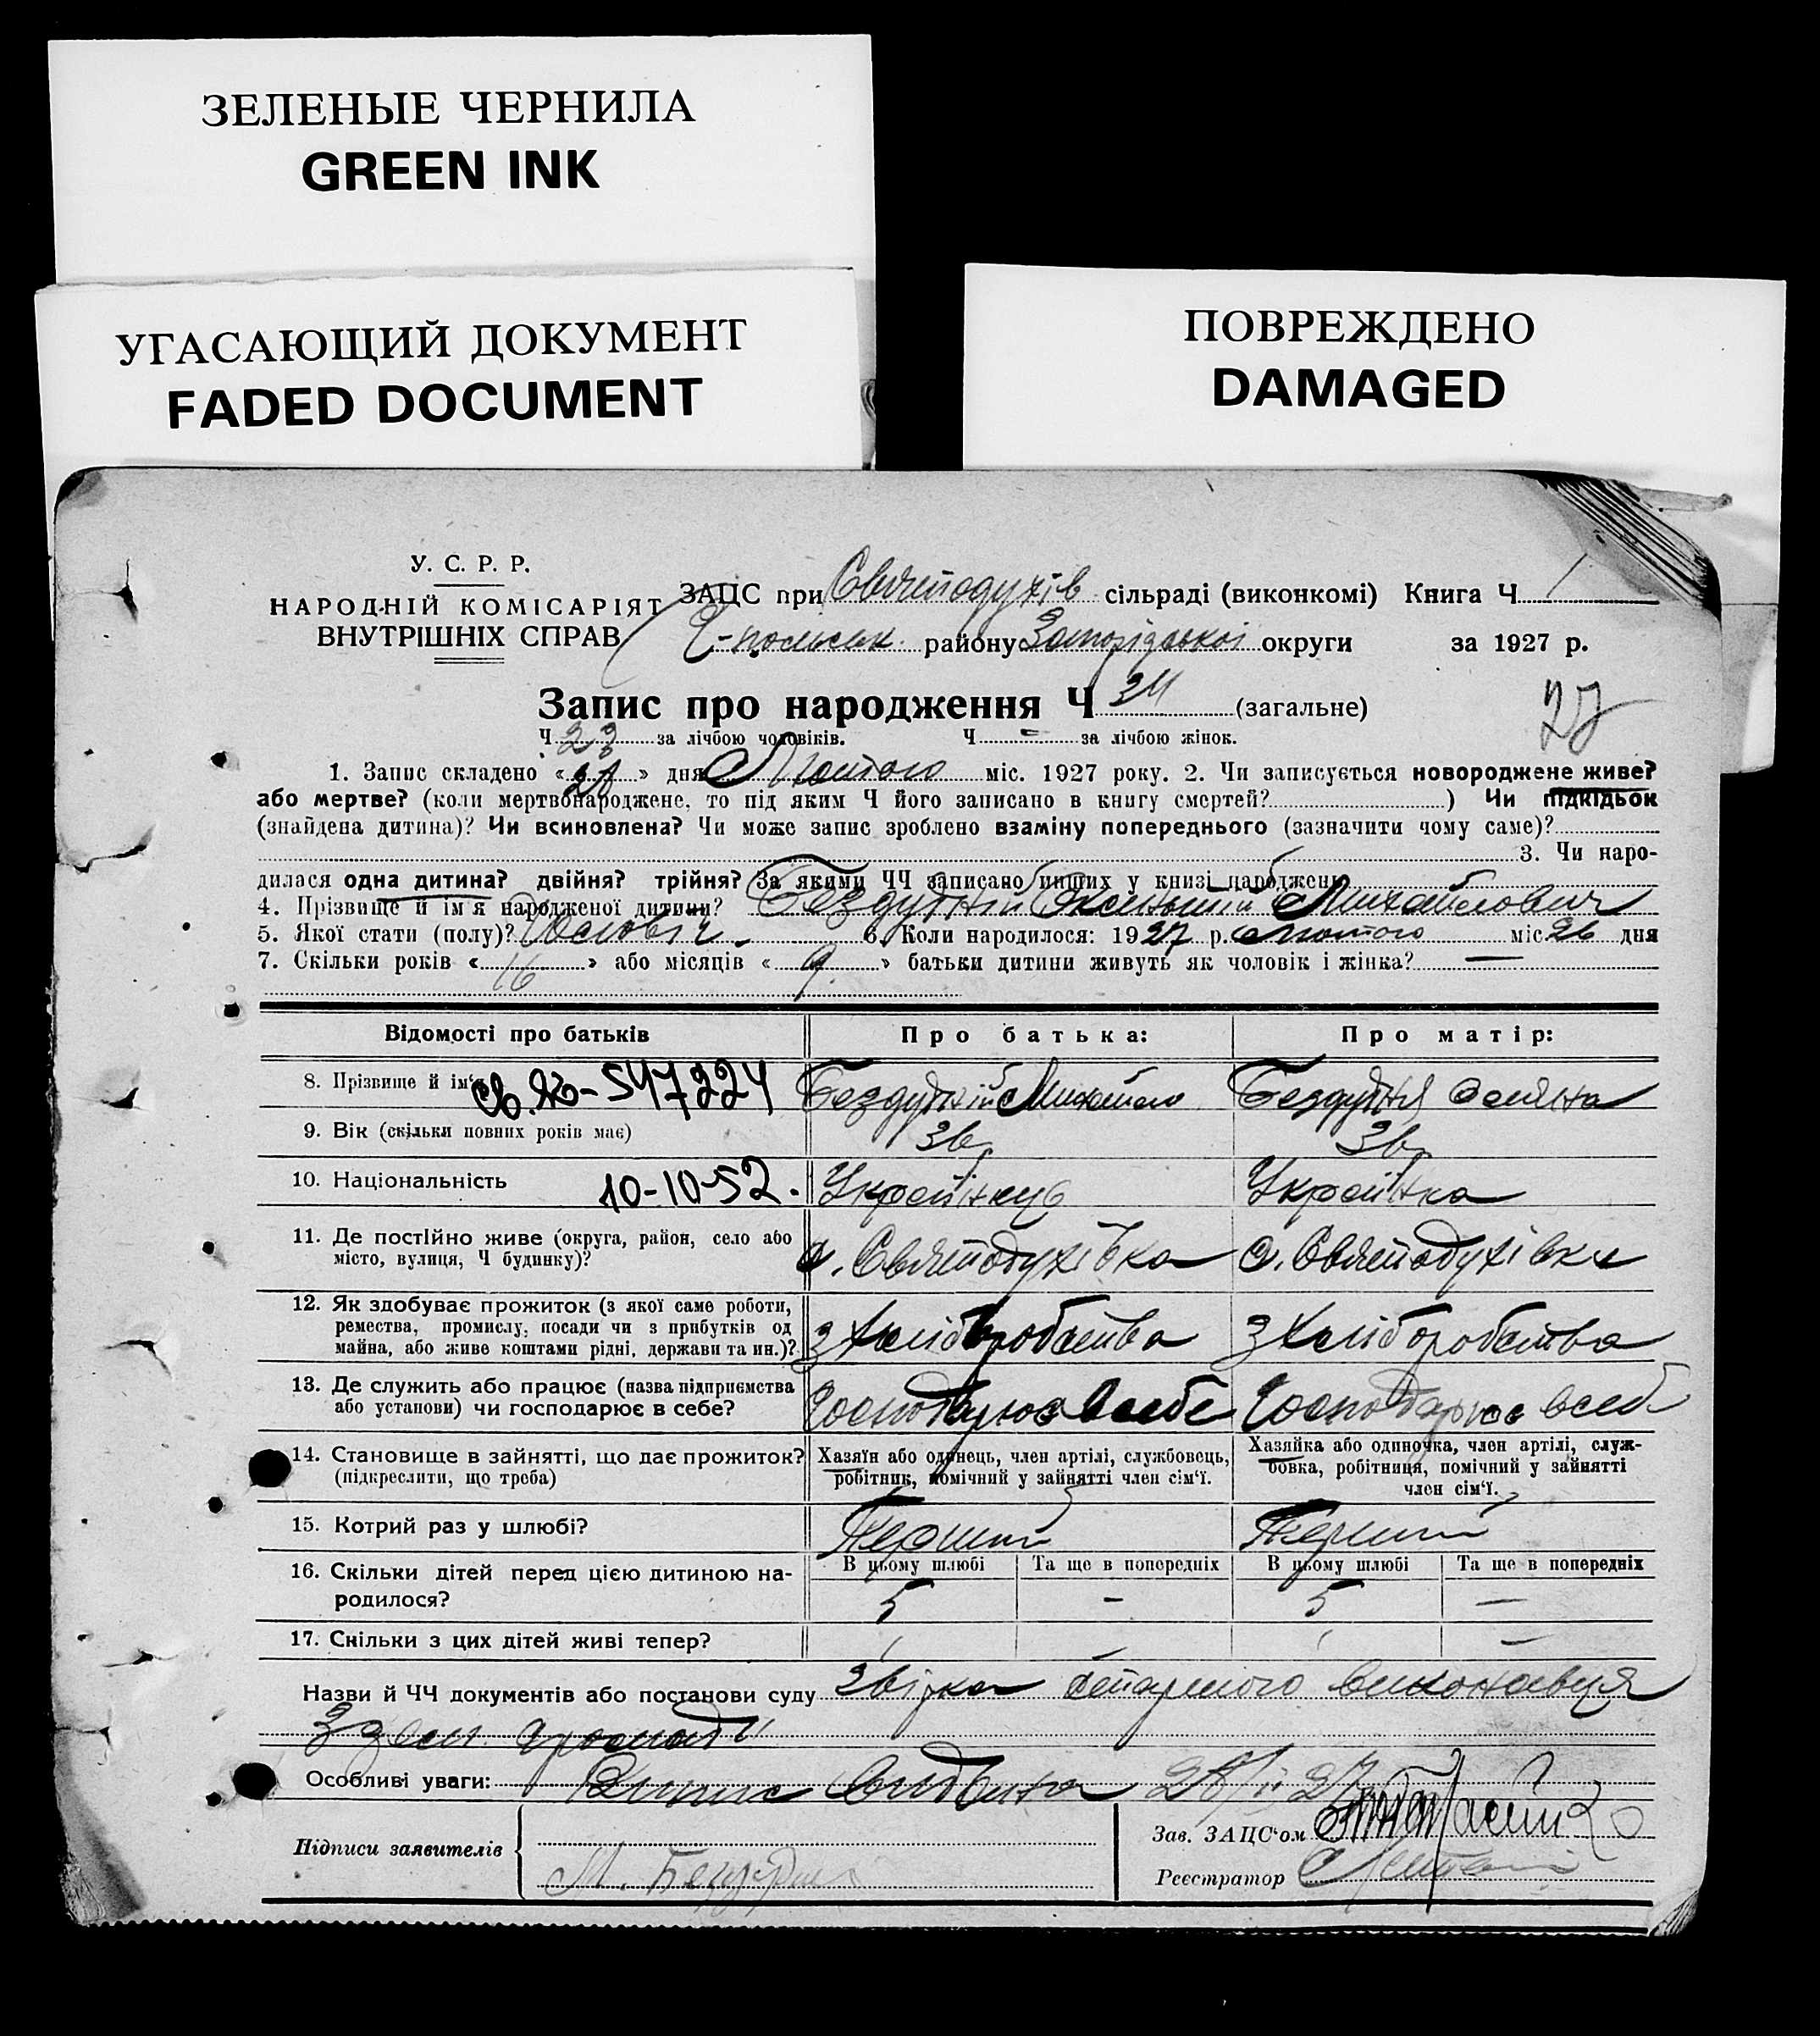 ЗЕЛЕНЫЕ ЧЕРНИЛА
GREEN INK
УГАСАЮЩИЙ ДОКУМЕНТ
FADED DOCUMENT
ПОВРЕЖДЕНО
DAMAGED
У. С. Р. Р.
НАРОДНІЙ КОМІСАРІЯТ
ВНУТРІШНІХ СПРАВ
ЗАЦС при Святодухів сільраді (виконкомі) Книга Ч 1
району Запорізької округи за 1927 р.
Запис про народження Ч 34 (загальне)
27
Ч 23 за лічбою чоловіків. Ч - за лічбою жінок.
1. Запис складено « » дня Лютого міс. 1927 року. 2. Чи записується новороджене живе?
або мертве? (коли мертвонароджене, то під яким Ч його записано в книгу смертей? ) Чи підкідьок
(знайдена дитина)? Чи всиновлена? Чи може запис зроблено взаміну попереднього (зазначити чому саме)?
3. Чи наро-
дилася одна дитина? двійня? трійня? За якими ЧЧ записано инших у книзі народжень
4. Прізвище й ім'я народженої дитини? Михайлович
5. Якої стати (полу)? Чоловіч. 6. Коли народилося: 1927 р. Лютого міс 26 дня
7. Скільки років « 16 » або місяців « 9 » батьки дитини живуть як чоловік і жінка? —
Відомості про батьків
Про батька:
Про матір:
8. Прізвище й ім'я
547224
Михайло
9. Вік (скільки повних років має)
36
36
10. Національність
10-10-52.
Українець
Українка
11. Де постійно живе (округа, район, село або
місто, вулиця, Ч будинку)?
с. Святодухівка
с. Святодухівка
12. Як здобуває прожиток (з якої саме роботи,
ремества, промислу, посади чи з прибутків од
майна, або живе коштами рідні, держави та ин.)?
З хліборобства
З хліборобства
13. Де служить або працює (назва підприємства
або установи) чи господарює в себе?
Господарює в себе
Господарює в себе
14. Становище в зайнятті, що дає прожиток?
(підкреслити, що треба)
Хазяїн або одинець, член артілі, службовець,
робітник, помічний у зайнятті член сім'ї.
Хазяйка або одиночка, член артілі, служ-
бовка, робітниця, помічний у зайнятті
член сім'ї.
15. Котрий раз у шлюбі?
Перший
Перший
16. Скільки дітей перед цією дитиною на-
родилося?
В цьому шлюбі
Та ще в попередніх
В цьому шлюбі
Та ще в попередніх
5
-
5
—
17. Скільки з цих дітей живі тепер?
—
Назви й ЧЧ документів або постанови суду Звірка старшого виконавця
Особливі уваги: Випис видана
Підписи заявителів
М.
Зав. ЗАЦС'ом
Реєстратор